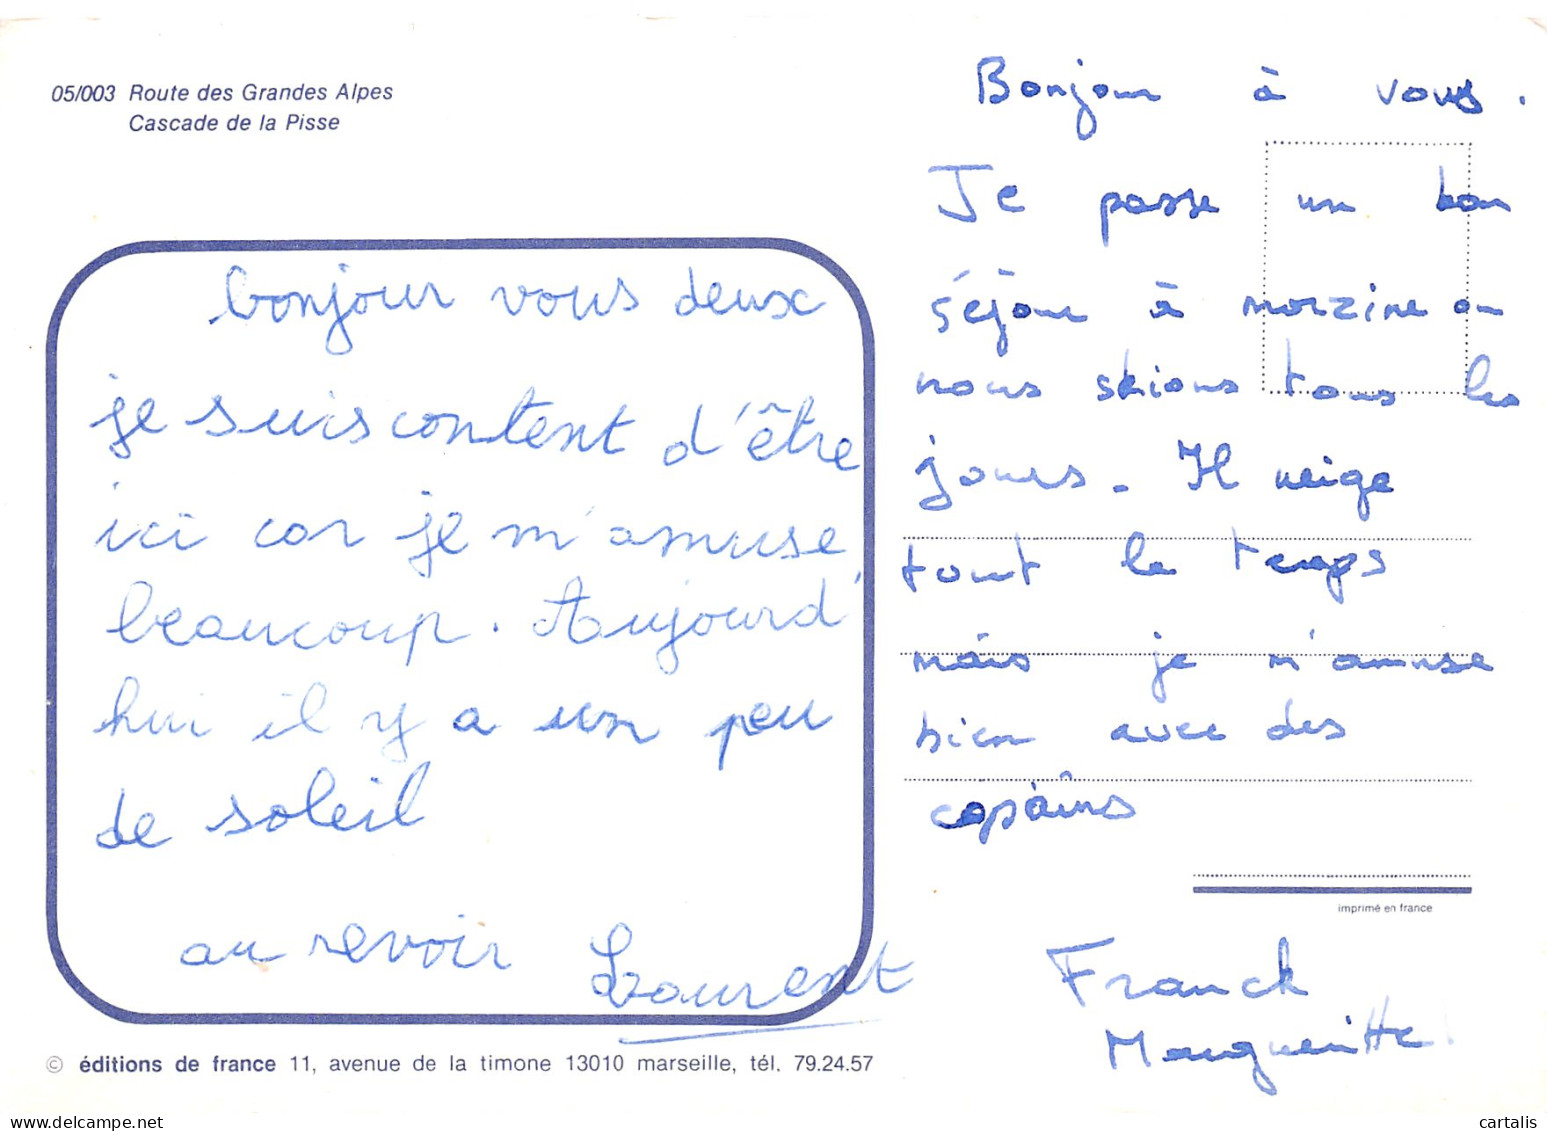 05/003 Route des Grandes Alpes
Cascade de la Pisse
bonjour vous deux
je suis content d'être
ici car je m'amuse
beaucoup. Aujourd'
hui il y a un peu
de soleil
au revoir Laurent
© éditions de france 11, avenue de la timone 13010 marseille, tél. 79.24.57
Bonjour à vous.
Je passe un bon
séjour à morzine ou
nous skions tous les
jours. Il neige
tout le temps
mais je m'amuse
bien avec des
copains
imprimé en france
Franck
Margueritte
cartalis
delcampe.net